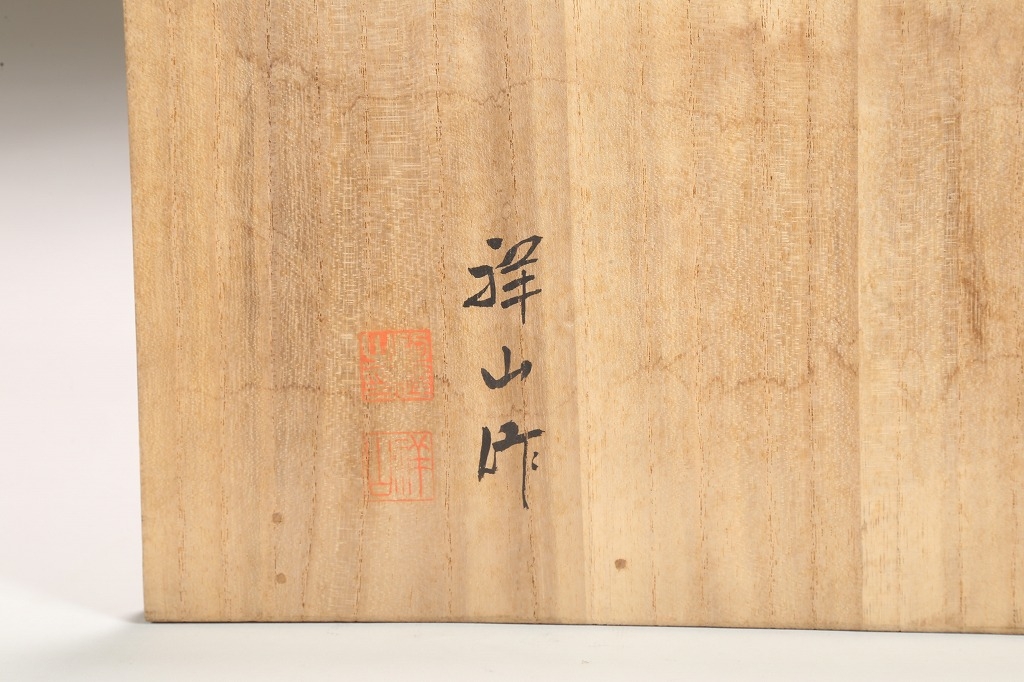 祥山作
祥山